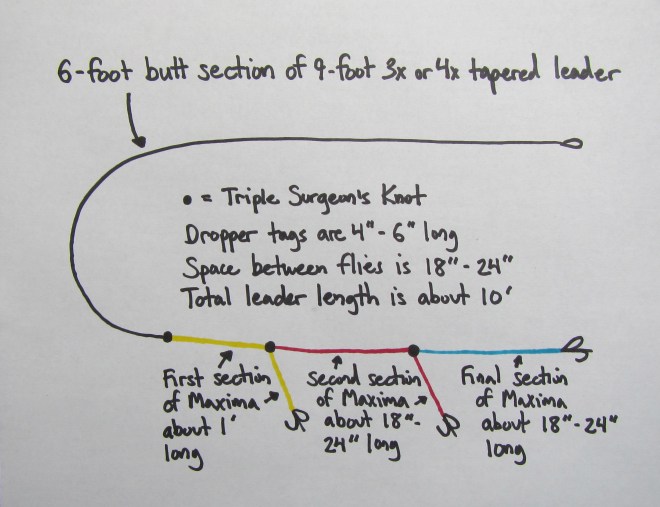 6-foot butt section of 9-foot 3x or 4x tapered leader
• = Triple Surgeon's Knot
Dropper tags are 4"-6" long
Space between flies is 18"-24"
Total leader length is about 10'
First section
of Maxima
about 1'
long
Second section
of Maxima
about 18"-
24" long
Final section
of Maxima
about 18"-24"
long